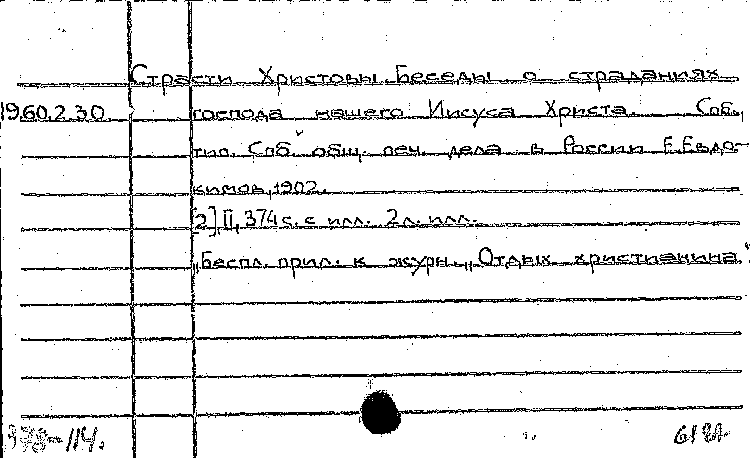 Страсти Христовы. Беседы о страданиях
19.60.2.30 господа нашего Иисуса Христа. Спб.,
тип. Спб" общ. печ. дела в России Е.Евдо-
кимов, 1902.
[2], II, 374 с. с илл. 2 л. илл.
"Беспл. прил. к журн. "Отдых христианина"
378-114.